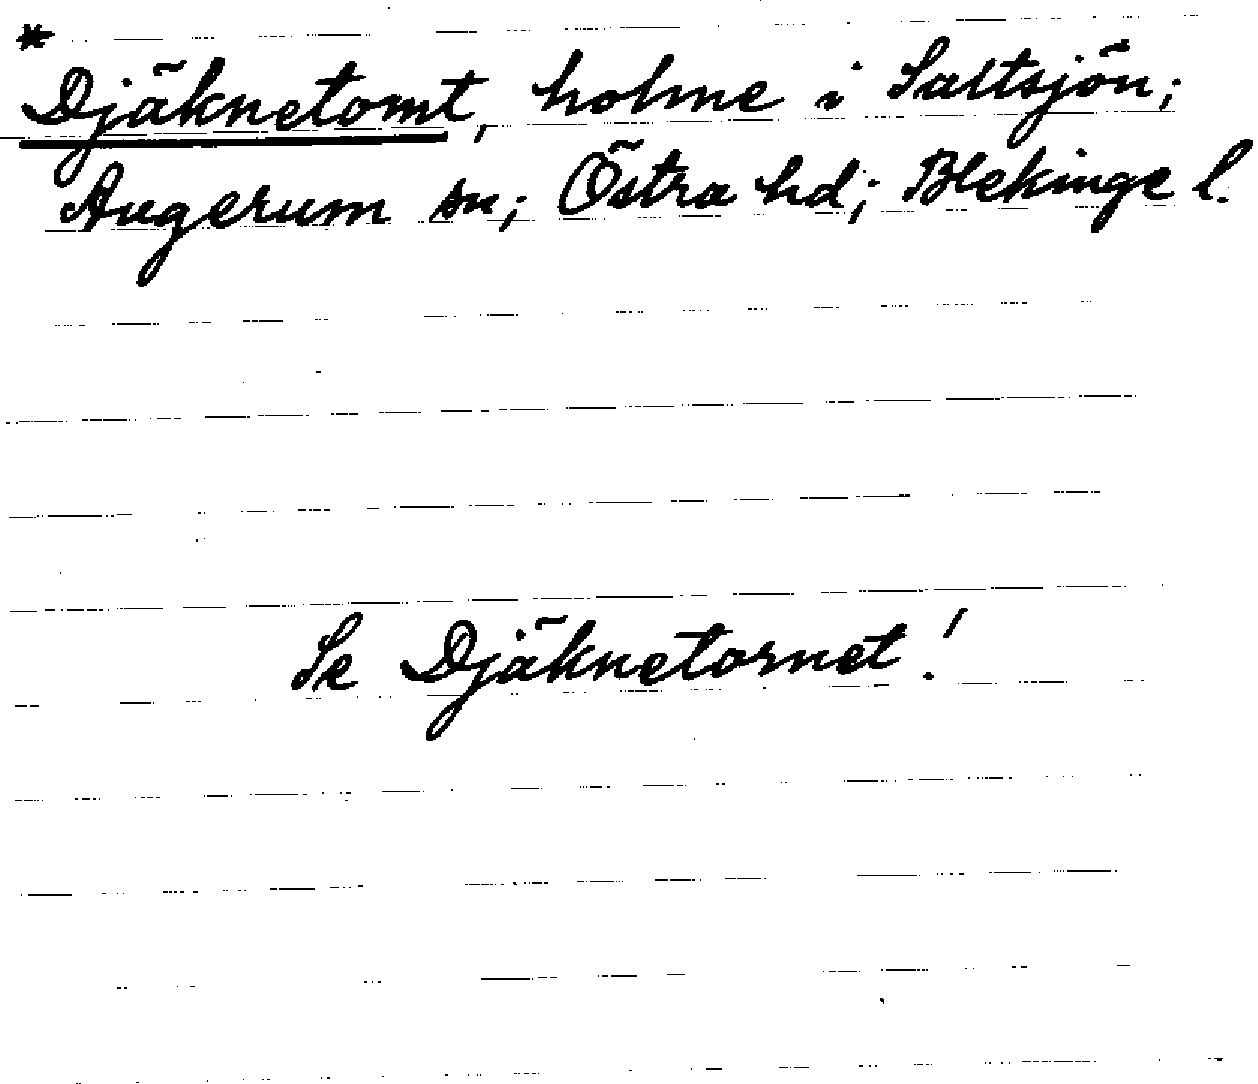 * Djäknetomt, holme i Saltsjön;
Augerum sn; Östra hd; Blekinge l.
Se Djäknetornet!